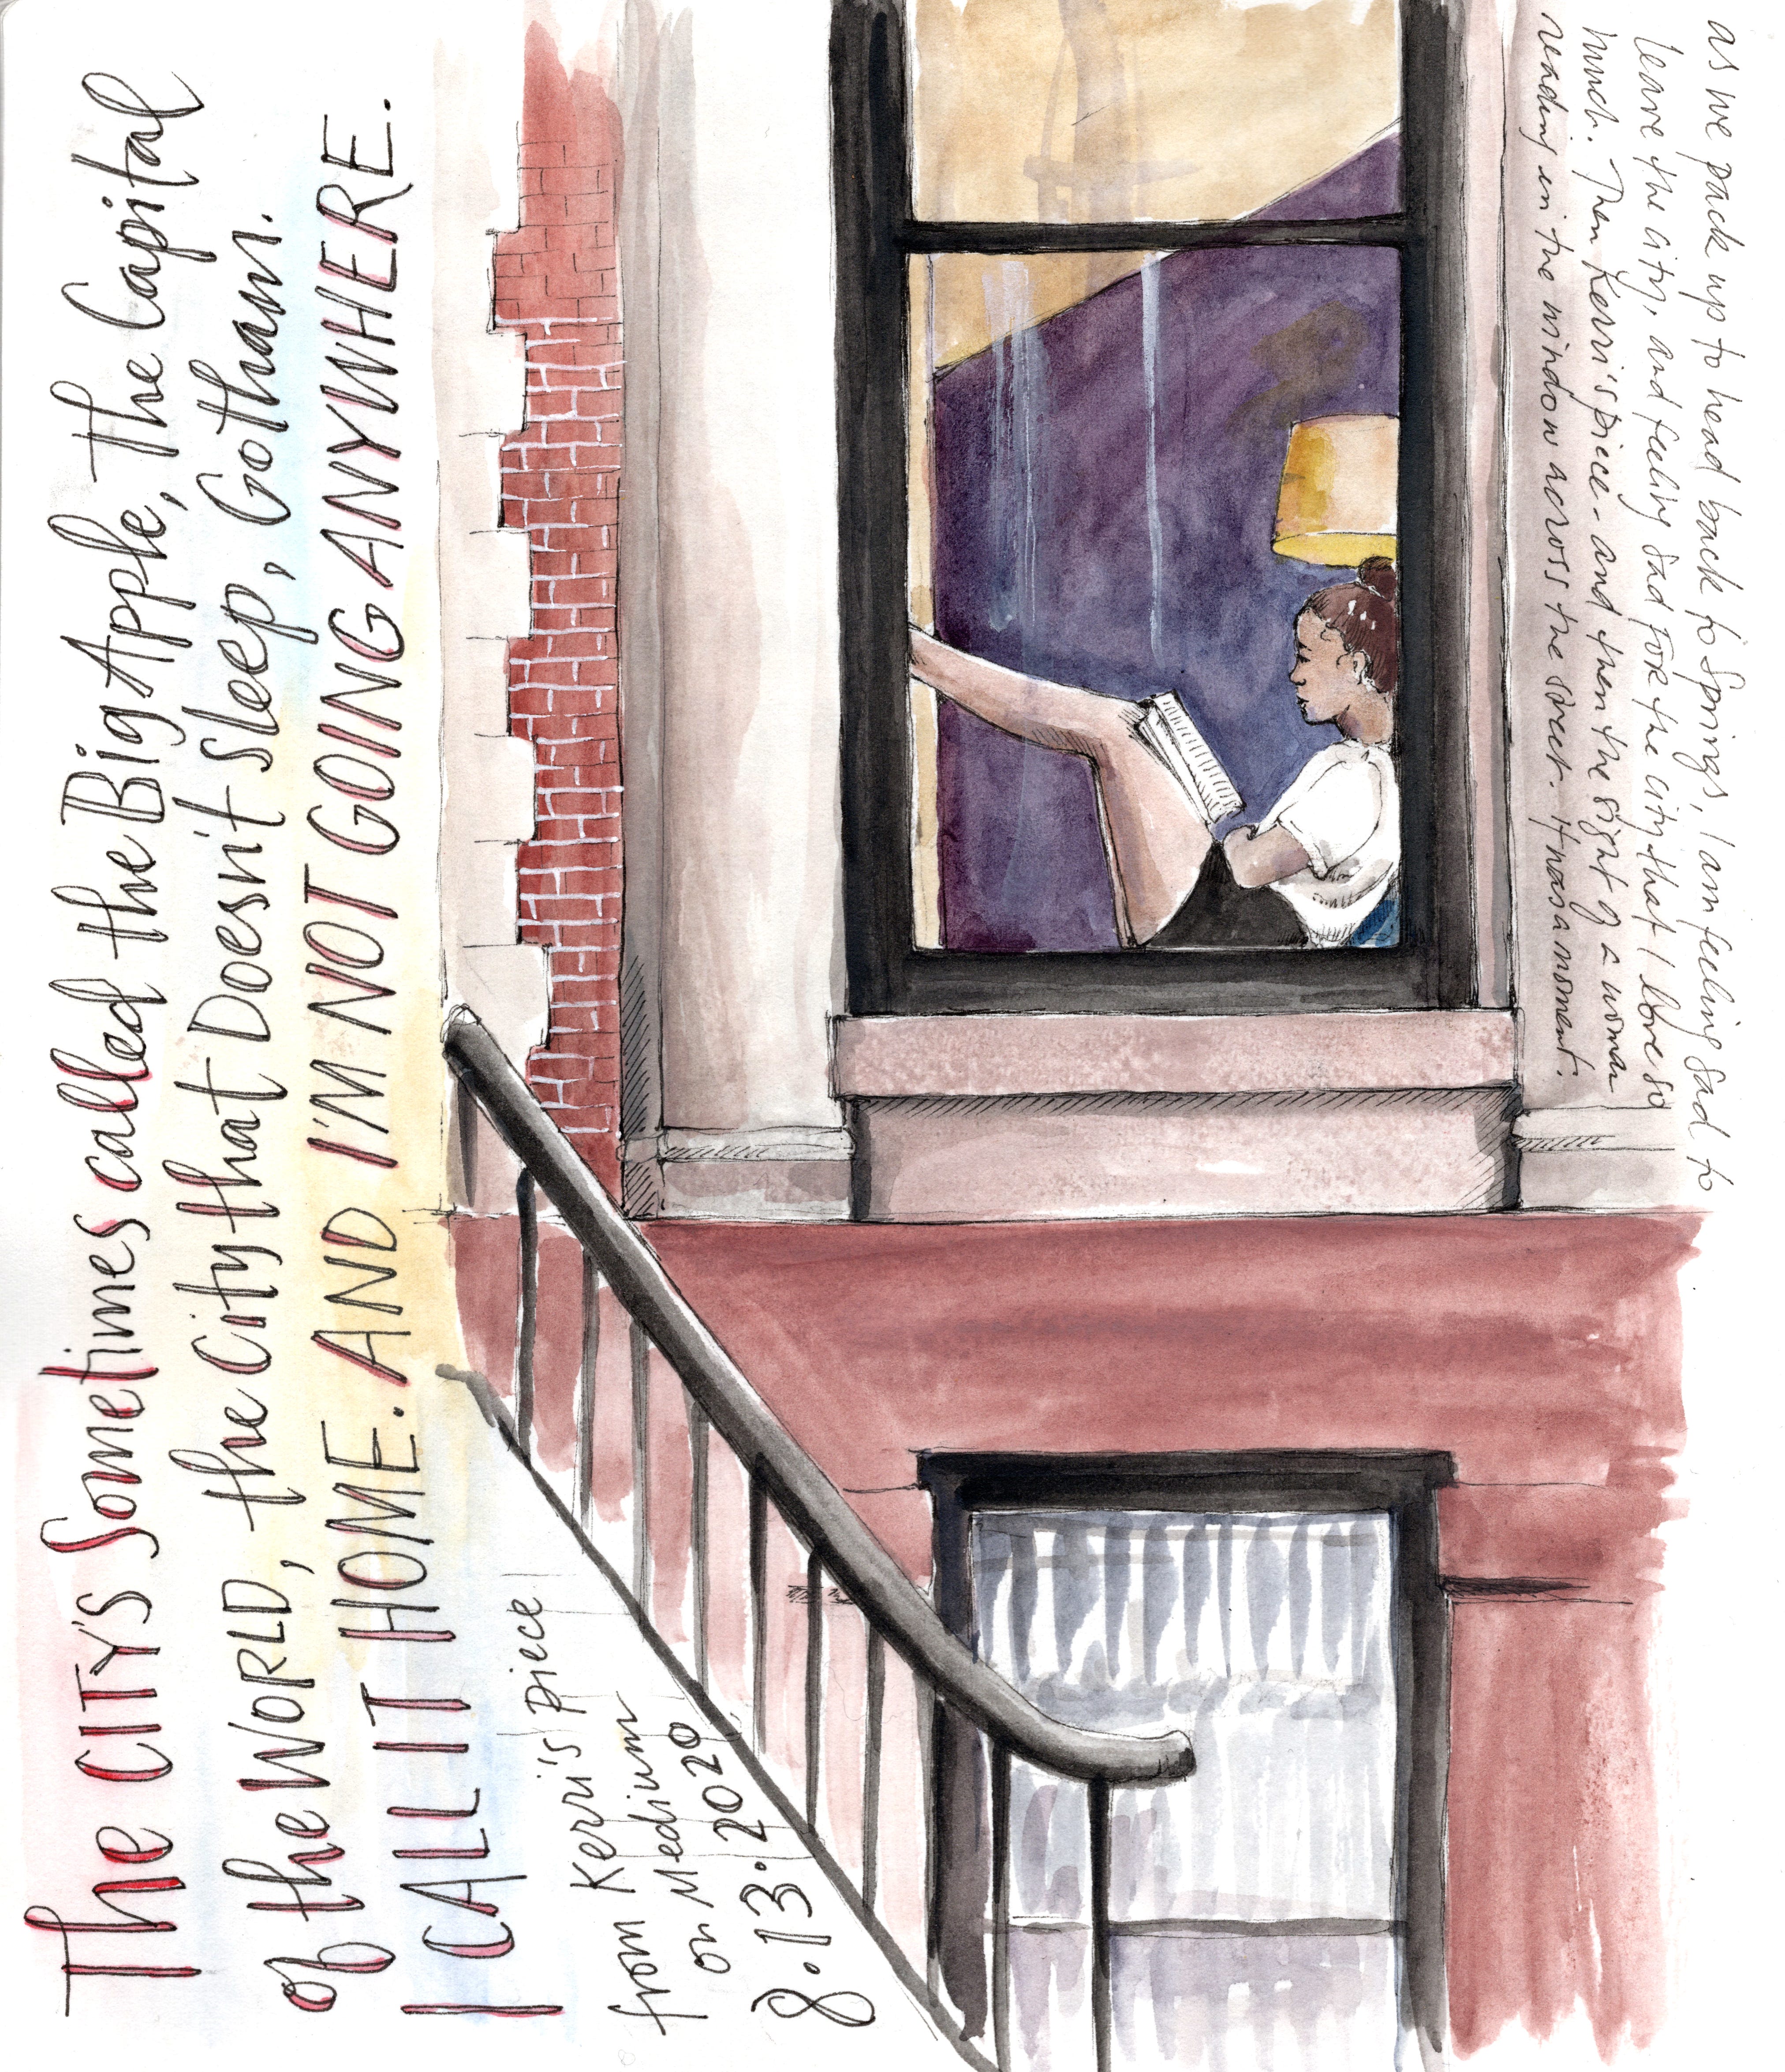 The CITY'S Sometimes called the Big Apple, The Capital
of the WORLD, the City that Doesn't Sleep, Gotham.
I CALL IT HOME. AND I'M NOT GOING ANYWHERE.
from Kerri's piece
from Medium
on
8.13.2020
as we pack up to head back to Springs, I am feeling sad to
leave the city, and feeling sad FOR the city that I love so
much. Then Kerri's piece - and then the sight of a woman
reading in the window across the street. It was a moment.